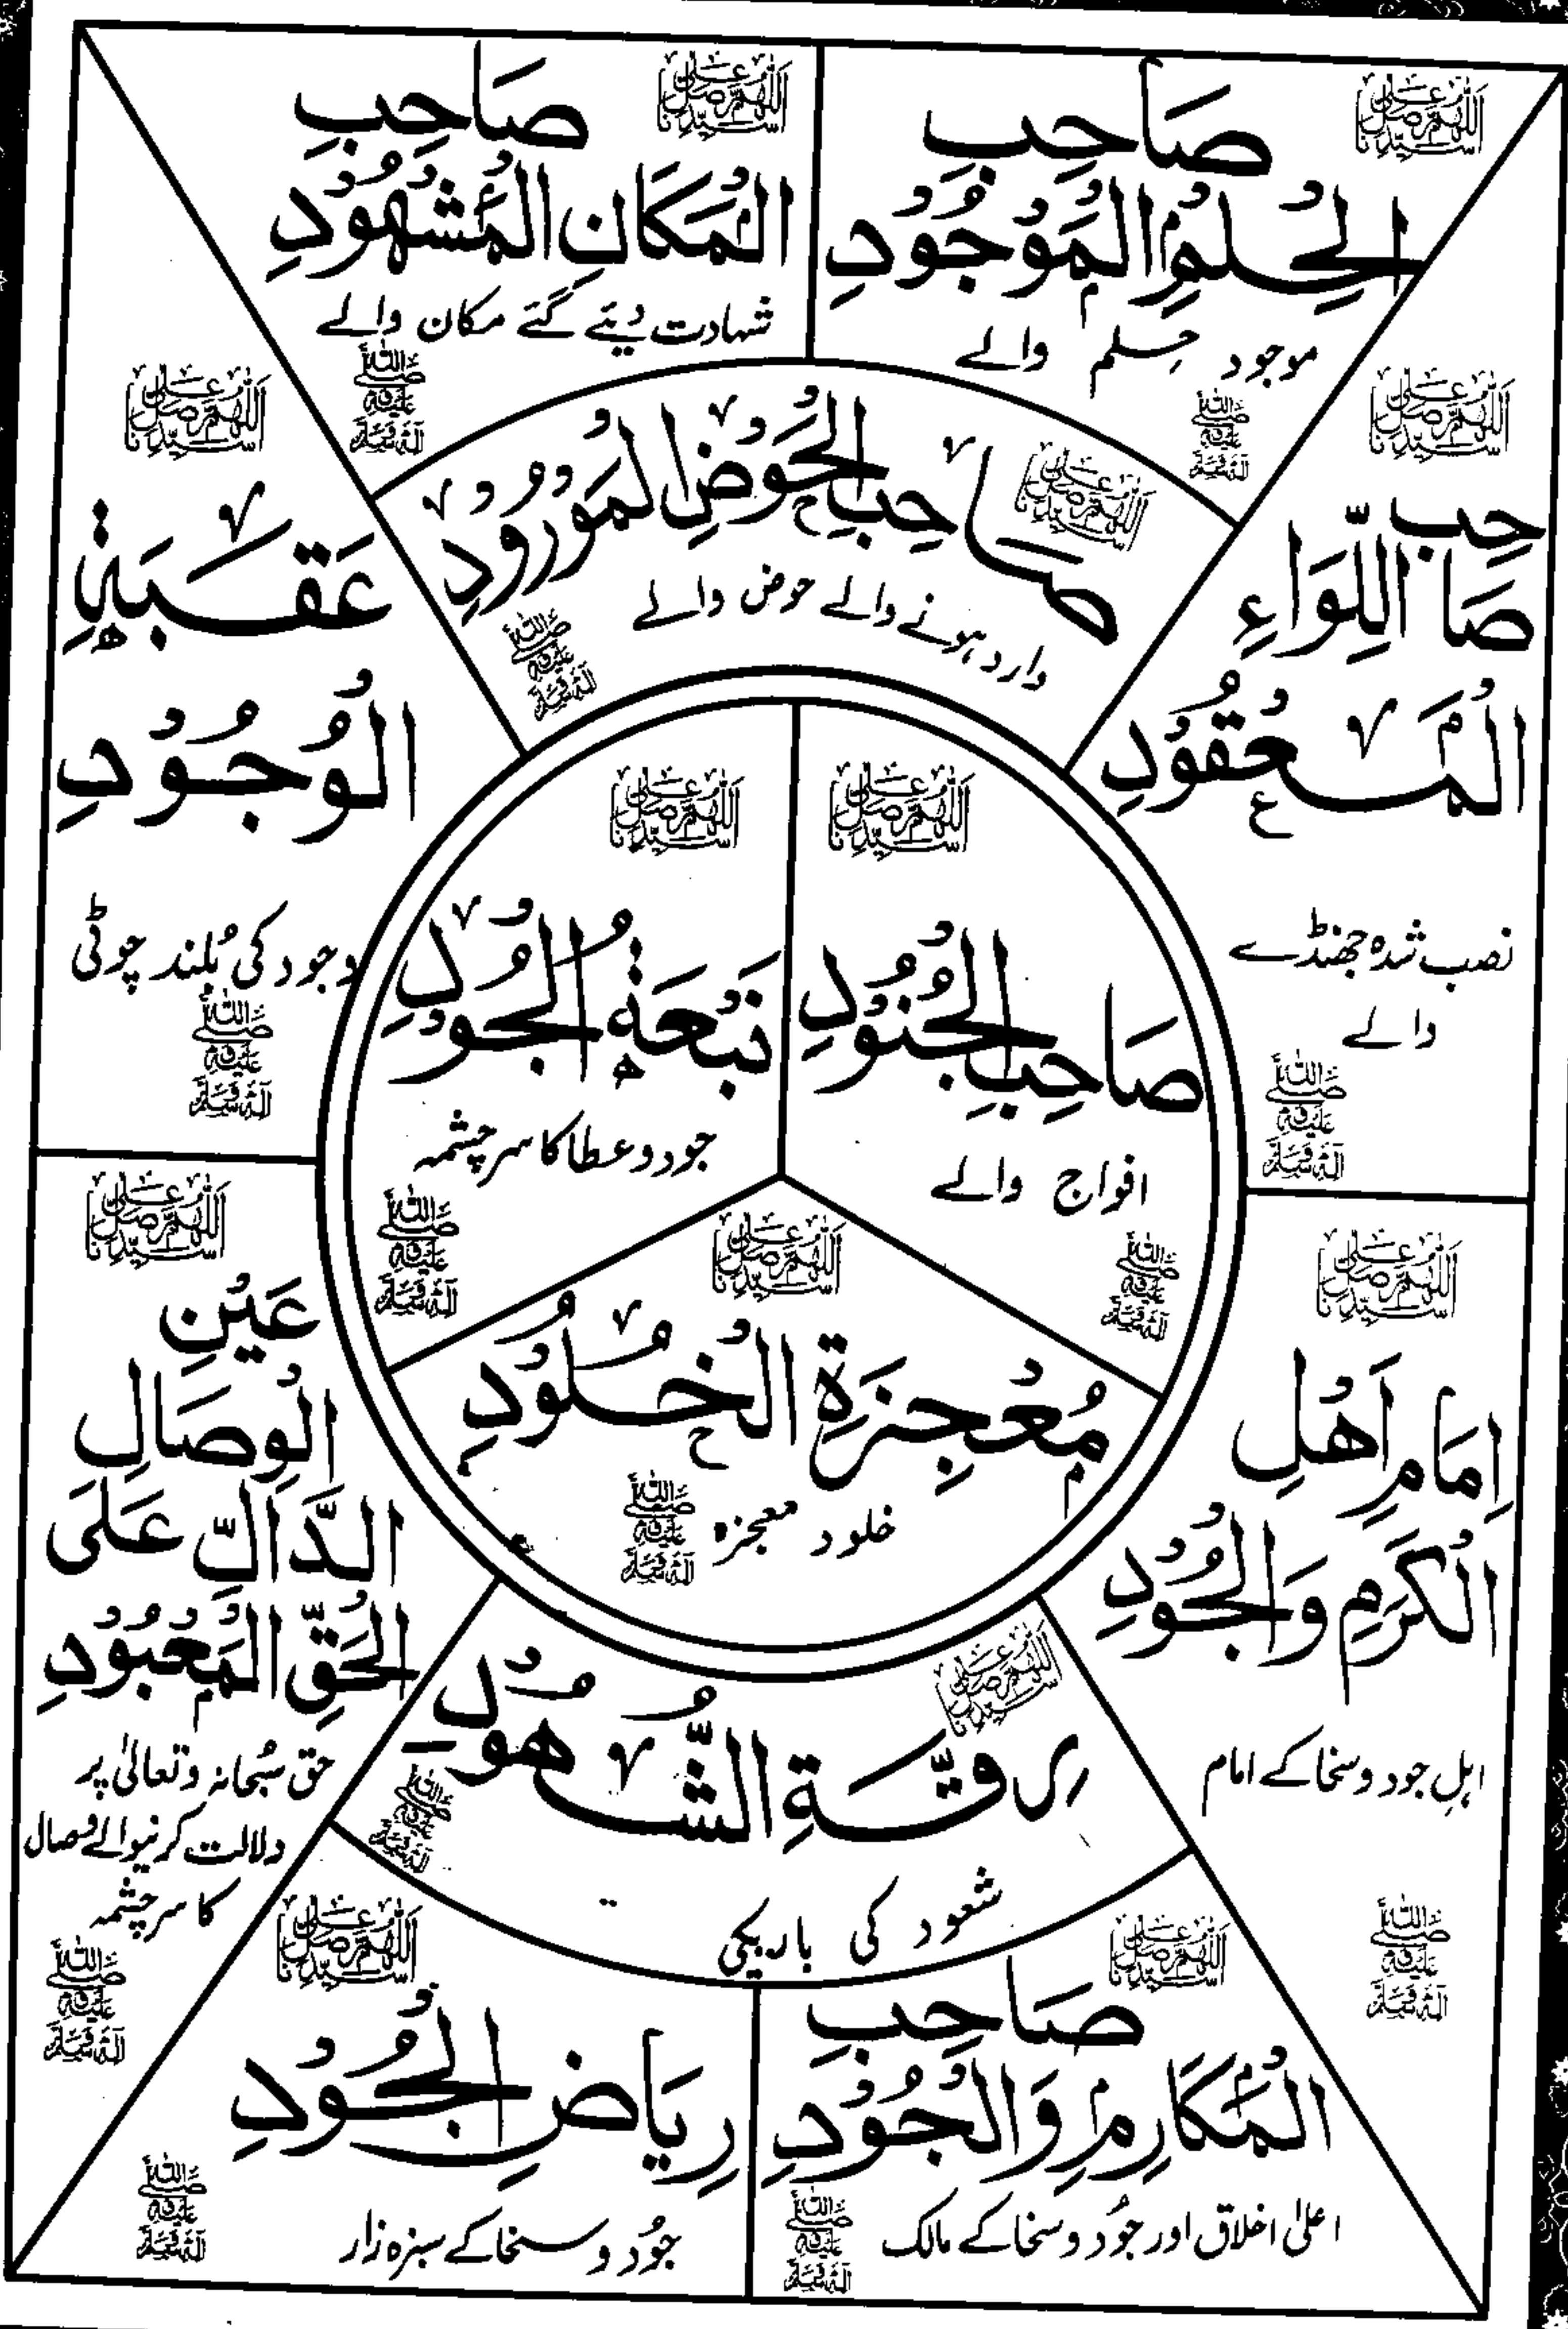 اللهم صل على سيدنا
صَاحِبِ
الْحِلْمِ الْمَوْجُوْدِ
موجود حلم والے
صلى الله عليه وآله وسلم
اللهم صل على سيدنا
صَاحِبِ
الْمَكَانِ الْمَشْهُوْدِ
شہادت دیئے گئے مکان والے
صلى الله عليه وآله وسلم
اللهم صل على سيدنا
صَاحِبِ الْحَوْضِ الْمَوْرُوْدِ
وارد ہونے والے حوض والے
صلى الله عليه وآله وسلم
اللهم صل على سيدنا
صَاحِبِ اللِّوَاءِ
الْمَعْقُوْدِ
نصب شدہ جھنڈے
والے
صلى الله عليه وآله وسلم
اللهم صل على سيدنا
عَقَبَةِ
الْوُجُوْدِ
وجود کی بُلند چوٹی
صلى الله عليه وآله وسلم
اللهم صل على سيدنا
صَاحِبِ الْجُنُوْدِ
افواج والے
صلى الله عليه وآله وسلم
اللهم صل على سيدنا
نَبْعَةِ الْجُوْدِ
جود و عطا کا سرچشمہ
صلى الله عليه وآله وسلم
اللهم صل على سيدنا
مُعْجِزَةِ الْخُلُوْدِ
خلود معجزہ
صلى الله عليه وآله وسلم
اللهم صل على سيدنا
اِمَامِ اَهْلِ
الْكَرَمِ وَالْجُوْدِ
اہلِ جود و سخا کے امام
صلى الله عليه وآله وسلم
اللهم صل على سيدنا
عَيْنِ
الْوِصَالِ
الدَّالِّ عَلَى
الْحَقِّ الْمَعْبُوْدِ
حق سُبحانہ و تعالیٰ پر
دلالت کرنیوالے وصال
کا سرچشمہ
صلى الله عليه وآله وسلم
اللهم صل على سيدنا
رِقَّةِ الشُّهُوْدِ
شعود کی باریکی
صلى الله عليه وآله وسلم
اللهم صل على سيدنا
صَاحِبِ
الْمَكَارِمِ وَالْجُوْدِ
اعلیٰ اخلاق اور جُود و سخا کے مالک
صلى الله عليه وآله وسلم
اللهم صل على سيدنا
رِيَاضِ الْجُوْدِ
جُود و سخا کے سبزہ زار
صلى الله عليه وآله وسلم